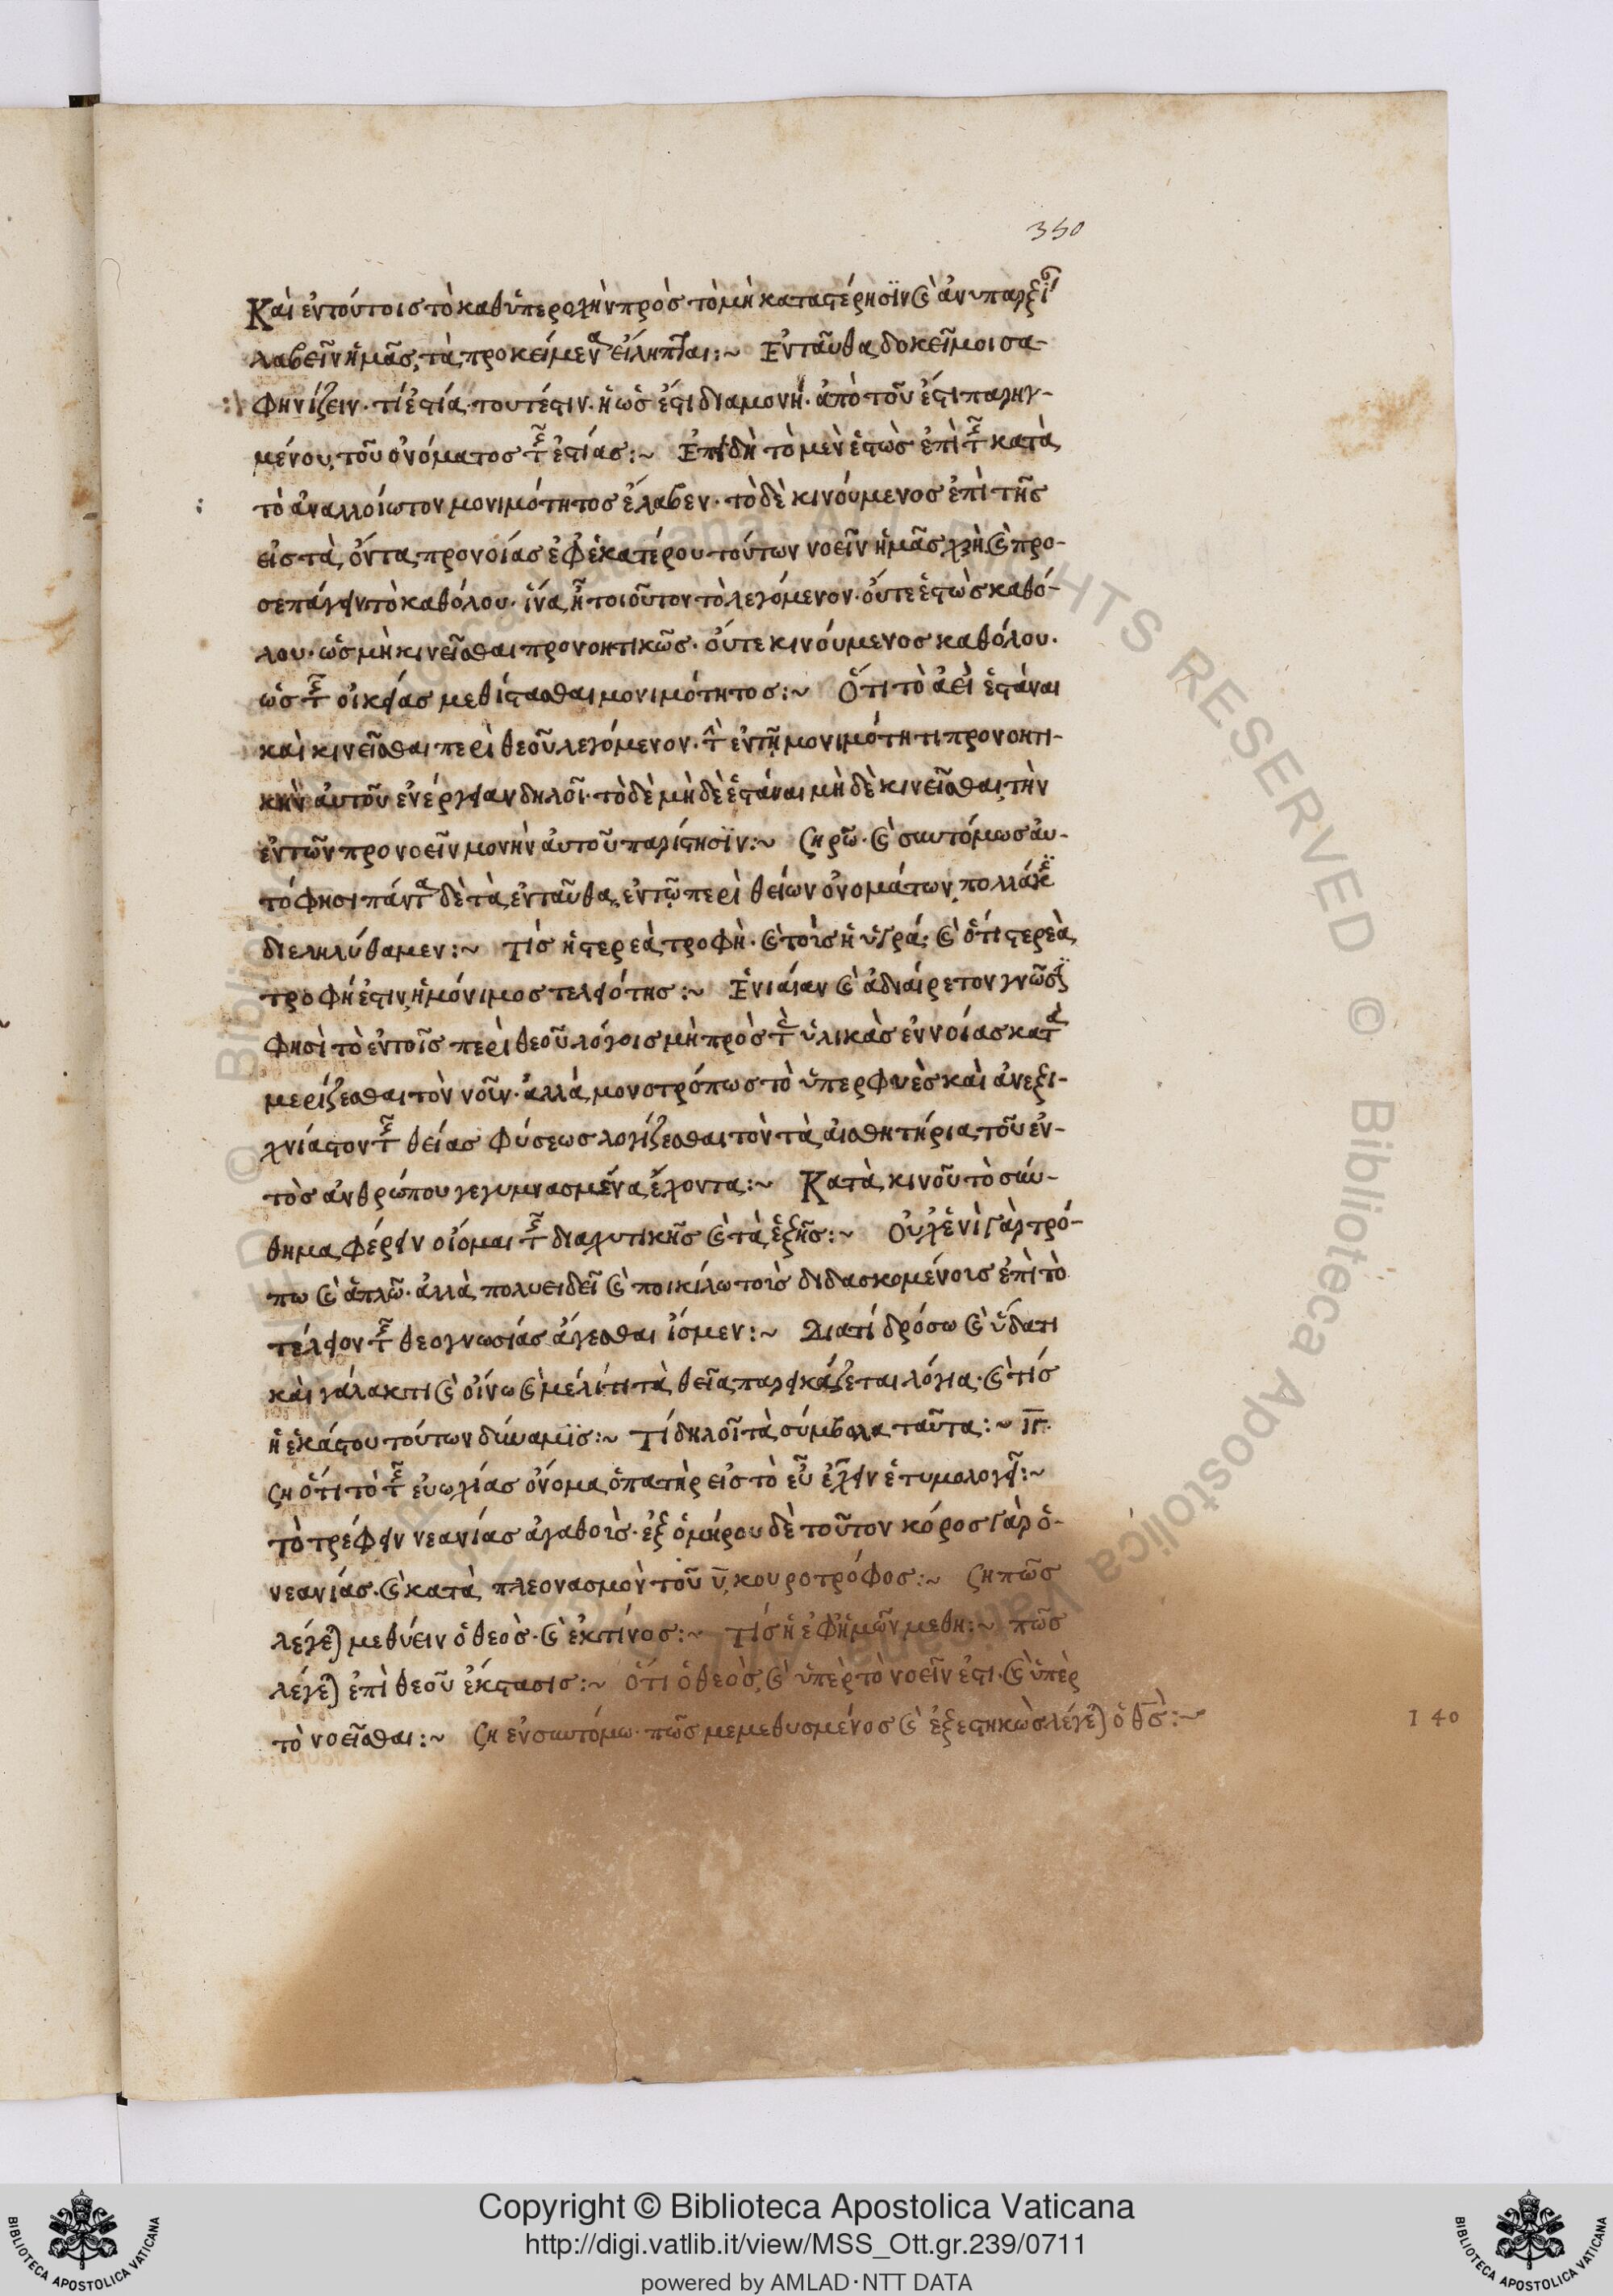 350
Καὶ ἐν τούτοις τὸ καθ' ὑπεροχὴν πρὸς τὸ μὴ κατα στέρησιν καὶ ἀνυπαρξίαν
λαβεῖν ἡμᾶς, τὰ προκείμενα εἴληπται :~ Ἐνταῦθα δοκεῖ μοι σα-
φηνίζειν· τί ἑστία· τουτέστιν· ἡ ὡς ἔστι διαμονή· ἀπὸ τοῦ ἔστι παρηγ-
μένου, τοῦ ὀνόματος τῆς ἑστίας :~ Ἐπειδὴ τὸ μὲν ἑστὼς ἐπὶ τῆς κατὰ
τὸ ἀναλλοίωτον μονιμότητος ἔλαβεν· τὸ δὲ κινούμενος ἐπὶ τῆς
εἰς τὰ ὄντα προνοίας ἐφ' ἑκατέρου τούτων νοεῖν ἡμᾶς χρὴ καὶ προ-
σεπάγειν τὸ καθόλου· ἵνα ἦ τοιοῦτον τὸ λεγόμενον· οὔτε ἑστὼς καθό-
λου· ὡς μὴ κινεῖσθαι προνοητικῶς· οὔτε κινούμενος καθόλου·
ὡς τῆς οἰκείας μεθίστασθαι μονιμότητος :~ Ὅτι τὸ ἀεὶ ἑστάναι
καὶ κινεῖσθαι περὶ θεοῦ λεγόμενον· τὴν ἐν τῇ μονιμότητι προνοητι-
κὴν αὐτοῦ ἐνέργειαν δηλοῖ· τὸ δὲ μὴ δὲ ἑστάναι μὴ δὲ κινεῖσθαι, τὴν
ἐν τῶν προνοεῖν μονὴν αὐτοῦ παρίστησϊν :~ ζη ρῶ· καὶ συντόμως αὐ-
τό φησι πάντα δὲ τὰ ἐνταῦθα, ἐν τῷ περὶ θείων ὀνομάτων πολλάκις
διεληλύθαμεν :~ Τίς ἡ στερεὰ τροφὴ· καὶ τοὶς ἡ ὑγρά; καὶ ὅτι στερεὰ
τροφή ἐστιν, ἡ μόνιμος τελειότης :~ Ἑνιαίαν καὶ ἀδιαίρετον γνῶσϊν
φησὶ τὸ ἐν τοῖς περὶ θεοῦ λόγοις μὴ πρὸς τὰς ὑλικὰς ἐννοίας κατα
μερίζεσθαι τὸν νοῦν· ἀλλὰ μονοτρόπως τὸ ὑπερφυὲς καὶ ἀνεξι-
χνίαστον τῆς θείας φύσεως λογίζεσθαι τὸν τὰ αἰσθητήρια τοῦ ἐν-
τὸς ἀνθρώπου γεγυμνασμένα ἔχοντα :~ Κατὰ κινοῦ τὸ σύν-
θημα φέρειν οἴομαι τῆς διαλυτικῆς καὶ τὰ ἑξῆς :~ Οὐχ ἑνὶ γὰρ τρό-
πω καὶ ἁπλῶ· ἀλλὰ πολυειδεῖ καὶ ποικίλω τοὶς διδασκομένοις ἐπὶ τὸ
τέλειον τῆς θεογνωσίας ἄγεσθαι ἴσμεν :~ Διατί δρόσω καὶ ὕδατι
καὶ γάλακτι καὶ οἴνω καὶ μέλιτι τὰ θεῖα παρεικάζεται λόγια· καὶ τίς
ἡ ἑκάστου τούτων δύναμϊς :~ Τί δηλοῖ τὰ σύμβολα ταῦτα :~
ζη ὅτι τὸ τῆς εὐωχίας ὄνομα, ὁ πατὴρ εἰς τὸ εὖ ἔχειν ἐτυμολογεῖ :~
τὸ τρέφειν νεανίας ἀγαθοὶς· ἐξ ὁμήρου δὲ τοῦτον κόρος γὰρ ὁ-
νεανίας· καὶ κατὰ πλεονασμὸν τοῦ υ, κουροτρόφος :~ ζη πῶς
λέγεται μεθύειν ὁ θεὸς· καὶ ἐκτίνος :~ Τίς ἡ ἐφ' ἡμῶν μεθη :~ πῶς
λέγεται ἐπὶ θεοῦ ἔκστασις :~ ὅτι ὁ θεὸς, καὶ ὑπὲρ τὸ νοεῖν ἐστι· καὶ ὑπὲρ
τὸ νοεῖσθαι :~ ζη ἐν συντόμω· πῶς μεμεθυσμένος καὶ ἐξεστηκὼς λέγεται ὁ θς :~
140
Copyright © Biblioteca Apostolica Vaticana
http://digi.vatlib.it/view/MSS_Ott.gr.239/0711
powered by AMLAD·NTT DATA